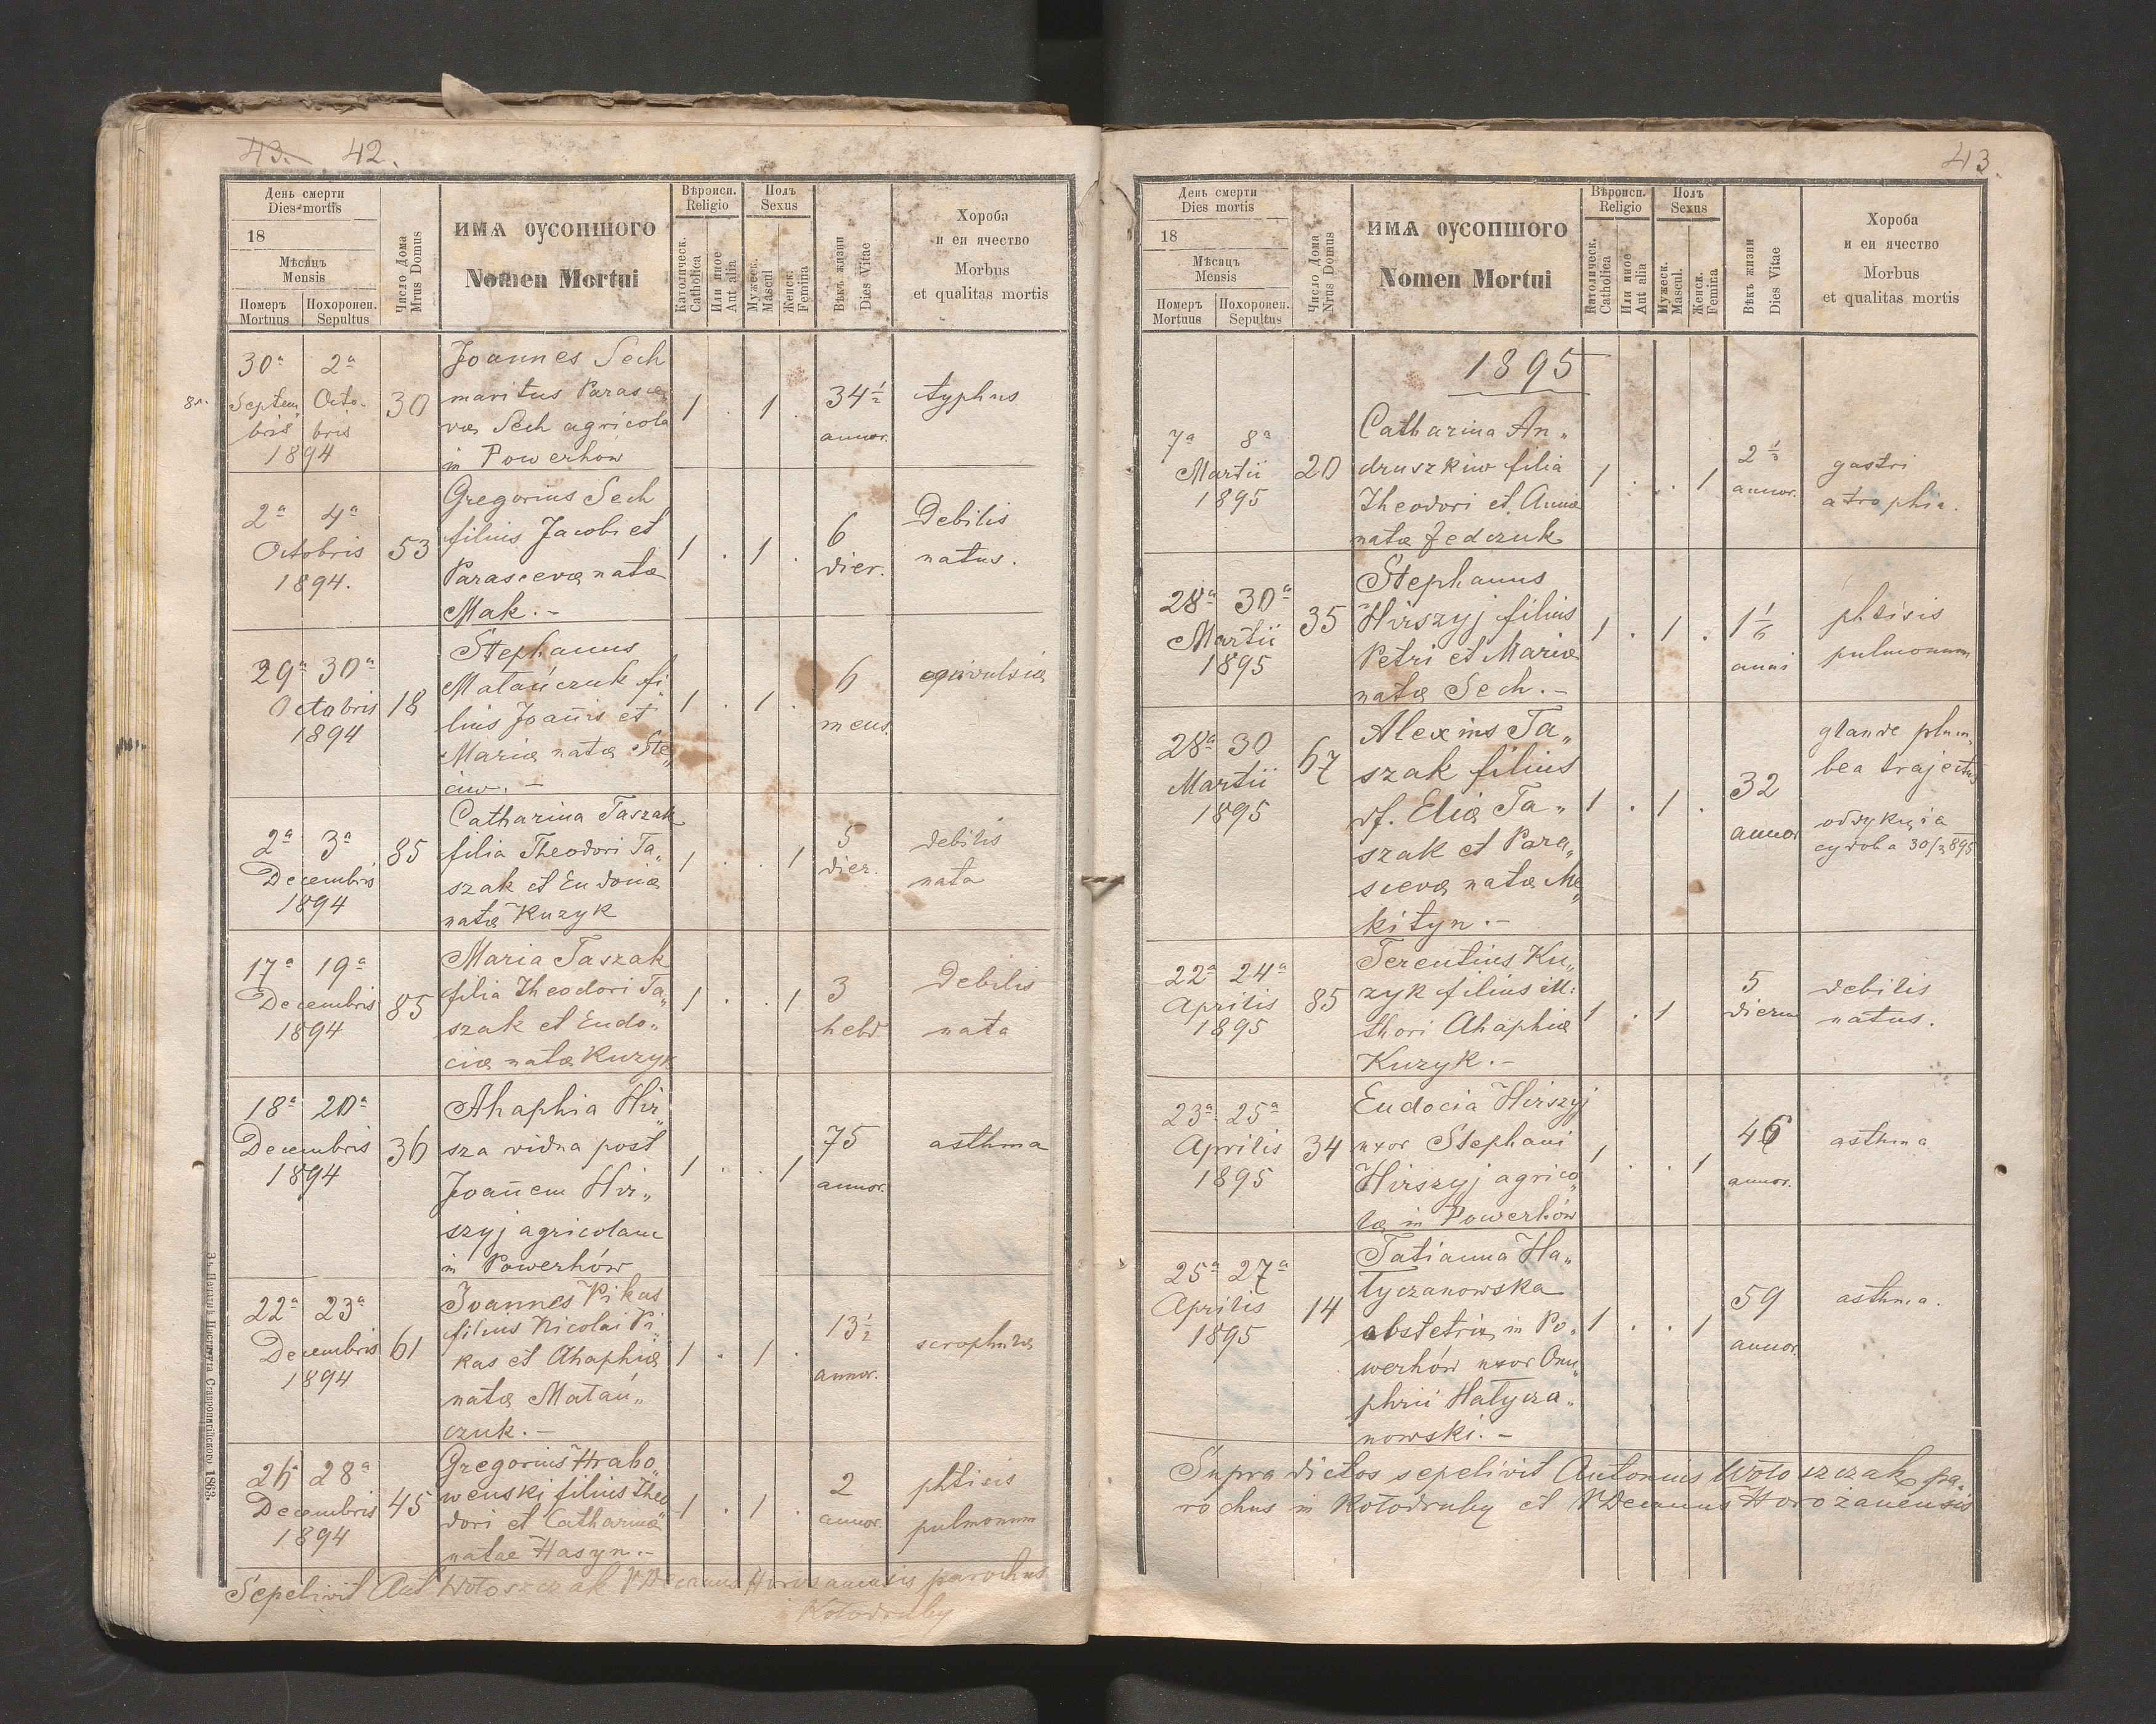 43. 42.
День смерти
Dies mortis
18
Мѣсяцъ
Mensis
Померъ
Mortuus
Похоронен.
Sepultus
Число Дома
Mrus Domus
ИМА ОУСОПШОГО
Nomen Mortui
Вѣроисп.
Religio
Католическ.
Catholica
Или иное
Aut alia
Полъ
Sexus
Мужеск.
Mascul
Женск.
Femina
Вѣкъ жизни
Dies Vitae
Хороба
и еи ячество
Morbus
et qualitas mortis
30ª 2ª
Septem Octo-
bris bris
1894
30
Joannes Sech
maritus Parasce
væ Sech agricola
in Powerhow
1 . 1 .
34 1/2
annor.
typhus
2ª 4ª
Octobris
1894.
53
Gregorius Sech
filius Jacobi et
Parascevæ natæ
Mak. -
1 . 1 .
6
dier.
Debilis
natus.
29ª 30ª
Octobris
1894
18
Stephanus
Matańczuk fi„
lius Joañis et
Mariæ natæ Ste„
ciw. -
1 . 1 .
6
mens.
convulsiæ
2ª 3ª
Decembris
1894
85
Catharina Taszak
filia Theodori Ta„
szak et Eudoxiæ
natæ Kuzyk
1 . . 1
5
dier.
debilis
nata
17ª 19ª
Decembris
1894
85
Maria Taszak
filia Theodori Ta„
szak et Eudo„
ciæ natæ Kuzyk
1 . . 1
3
hebd
Debilis
nata
18ª 20ª
Decembris
1894
36
Ahaphia Hir„
sza vidua post
Joañem Hir„
szyj agricolam
in Powerhów
1 . . 1
75
annor.
asthma
22ª 23ª
Decembris
1894
61
Joannes Pikas
filius Nicolai Pi„
kas et Ahaphiæ
natæ Matań„
czuk. -
1 . 1 .
13 1/2
annor.
scrophulæ
26ª 28ª
Decembris
1894
45
Gregorius Hrabo„
wenski filius Theo
dori et Catharinæ
natae Hasyn. -
1 . 1 .
2
annor.
phtisis
pulmonum
Sepelivit Ant Wołoszczak VDecanus Horożanensis parochus
Kołodruby
Зъ Печатнѣ Института Ставропигійского. 1863.
43.
День смерти
Dies mortis
18
Мѣсяцъ
Mensis
Померъ
Mortuus
Похоронен.
Sepultus
Число Дома
Nrus Domus
ИМА ОУСОПШОГО
Nomen Mortui
Вѣроисп.
Religio
Католическ.
Catholica
Или иное
Aut alia
Полъ
Sexus
Мужеск.
Mascul.
Женск.
Femina
Вѣкъ жизни
Dies Vitae
Хороба
и еи ячество
Morbus
et qualitas mortis
1895
7ª 8ª
Martii
1895
20
Catharina An„
druszkiw filia
Theodori et Annæ
natæ Fedczuk
1 . . 1
annor.
gastri
atrophia.
28ª 30ª
Martii
1895
35
Stephanus
Hirszyj filius
Petri et Mariæ
natæ Sech. -
1 . 1 .
1 1/6
anni
phtisis
pulmonum
28ª 30
Martii
1895
67
Alexius Ta„
szak filius
df. Eliæ Ta„
szak et Para„
scevæ natæ Me„
kityn. -
1 . 1 .
32
annor
glande plum„
bea trajectus
22ª 24ª
Aprilis
1895
85
Terentius Ku„
zyk filius ill:
thori Ahaphiæ
Kuzyk. -
1 . 1
5
dierum
debilis
natus.
23ª 25ª
Aprilis
1895
34
Eudocia Hirszyj
uxor Stephani
Hirszyj agrico„
læ in Powerhów
1 . . 1
46
annor.
asthma
25ª 27ª
Aprilis
1895
14
Tatianna Ha„
łyczanowska
obstetrix in Po„
werhów uxor Onu„
phrii Hałycza„
nowski. -
1 . . 1
59
annor.
asthma.
Supra dictos sepelivit Antonius Wołoszczak pa„
rochus in Kołodruby et VDecanus Horożanensis